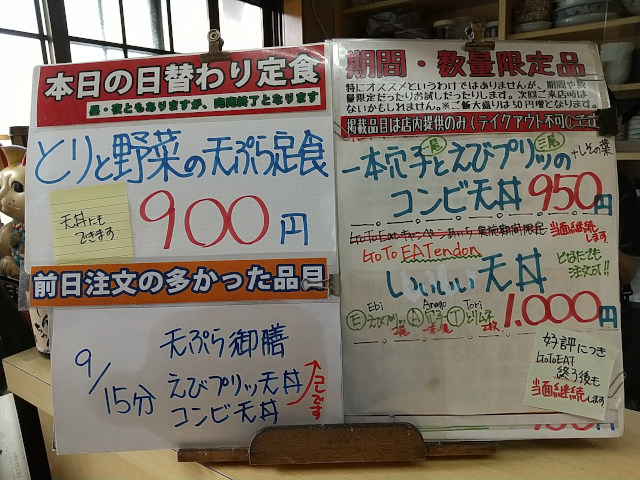 本日の日替わり定食
昼・夜ともありますが、完売終了となります
とりと野菜の天ぷら定食
天丼にも
できます
900円
前日注文の多かった品目
9/15分
天ぷら御膳
えびプリッ天丼
コンビ天丼
ここです
期間・数量限定品
特にオススメというわけではありませんが、期間や数
量限定だったりお試しだったりします。次回ご来店時は
ないかもしれません。※ご飯大盛りは50円増となります。
掲載品目は店内提供のみ(テイクアウト不可)です
一本穴子とえびプリッの
一尾 三尾
+しその葉
コンビ天丼 950円
GoToEatキャンペーン
当面継続
します。
GoTo EATendon
いいいい天丼
どなたでも
注文可!!
Ebi Anago Tori
Ⓔえびプリッ Ⓐ穴子 Ⓣとりムネ
1,000円
好評につき
GoToEAT
終了後も
当面継続します。